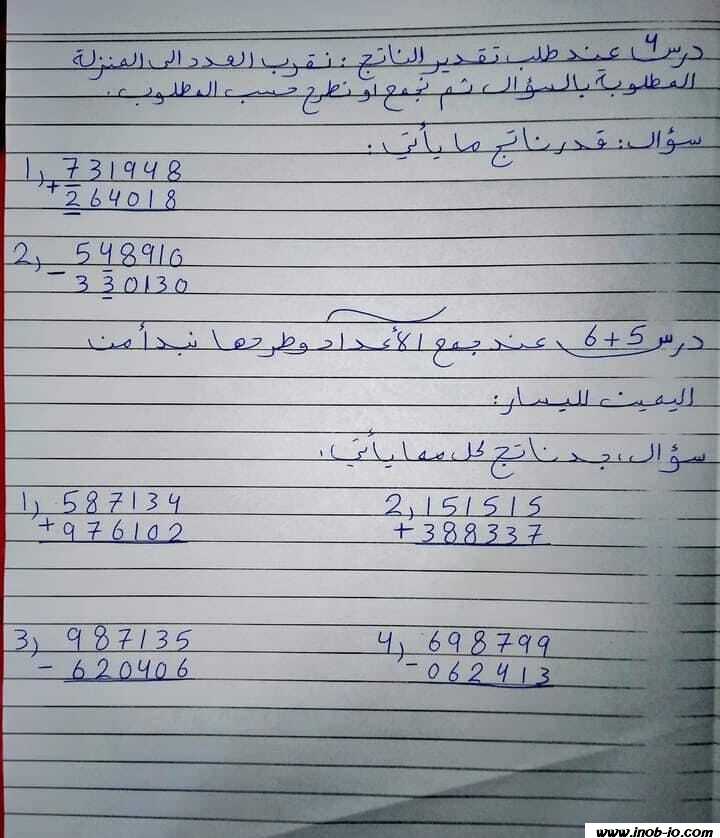 درس 4 عند طلب تقدير الناتج : نقرب العدد الى المنزلة
المطلوبة بالسؤال ثم نجمع او نطرح حسب المطلوب .
سؤال : قدر ناتج ما يأتي :
1) 731948
+ 264018
2) 548910
- 330130
درس 5+6 عند جمع الأعداد وطرحها نبدأ من
اليمين لليسار :
سؤال : جد ناتج كل مما يأتي :
1) 587134 2) 151515
+ 976102 + 388337
3) 987135 4) 698799
- 620406 - 062413
www.inob-io.com